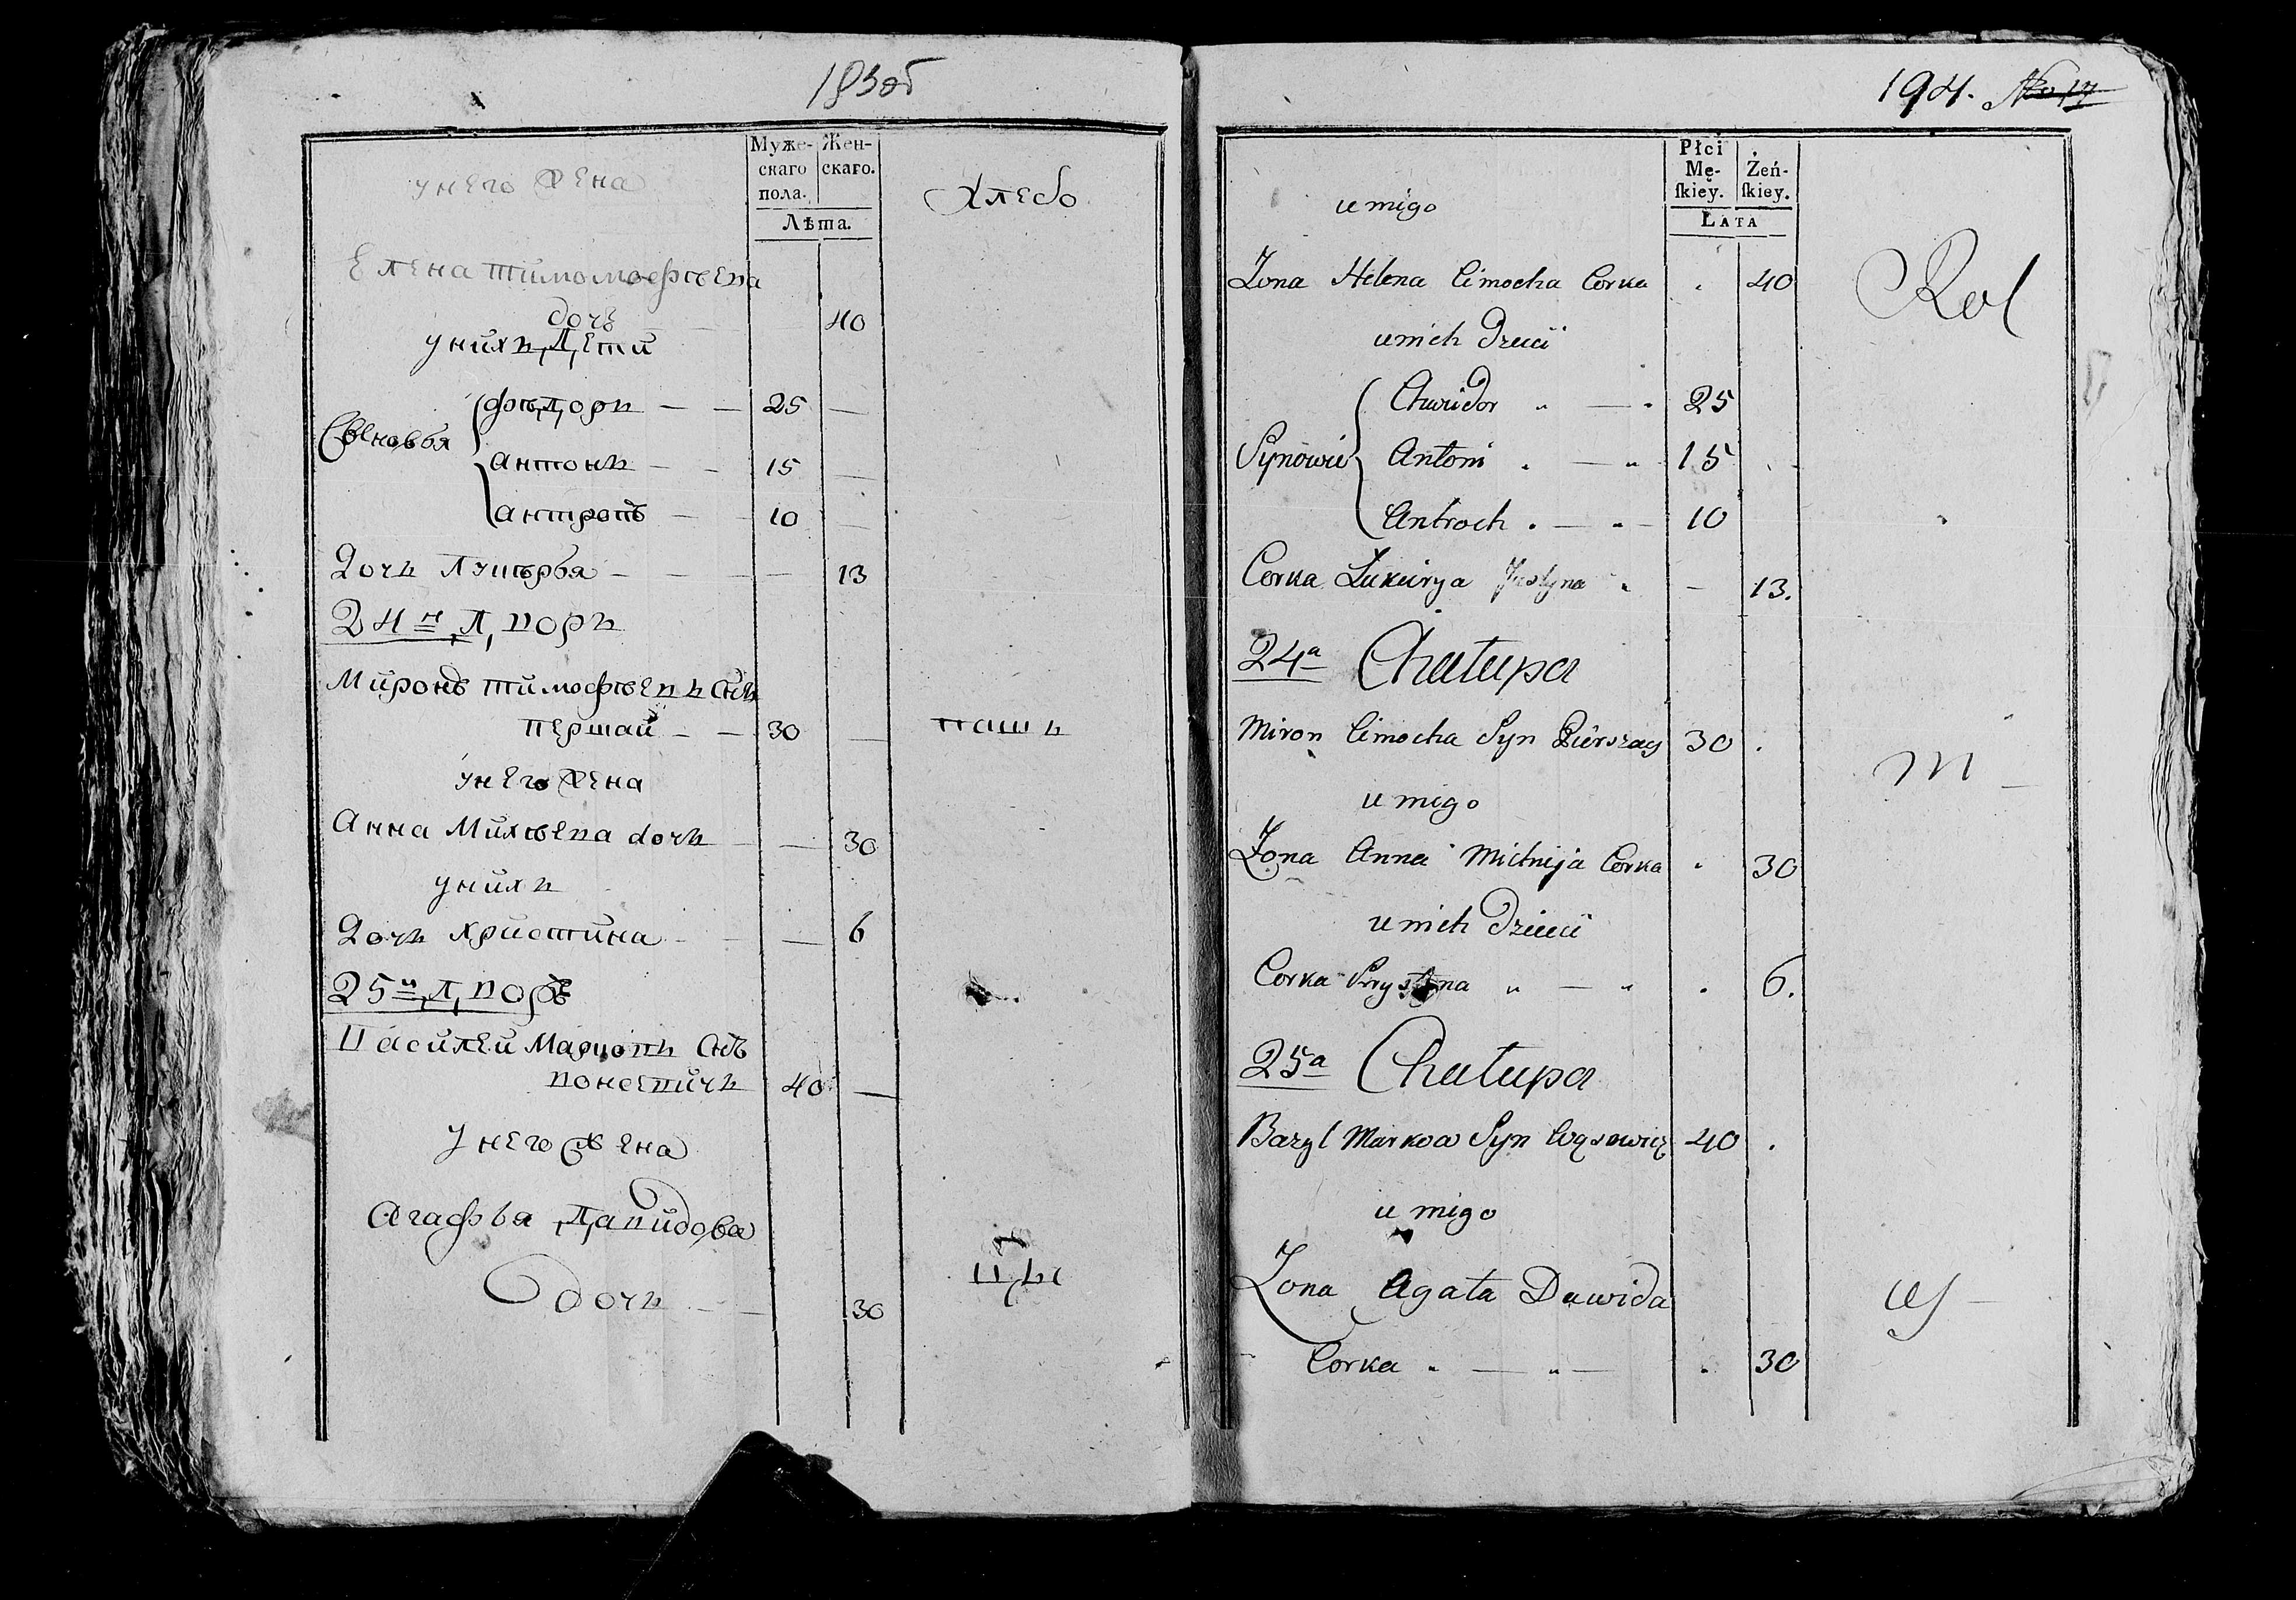 183об
Муже-скаго пола. Жен-скаго.
Лѣта.
унего жена
Хлебо
Елена тимомоефѣева
дочь 40
унихъ дети
Сыновья
фѣдоръ — — 25 —
антонъ — — 15 —
антропъ — — 10 —
Дочъ лукѣрья — — — 13
24й дворъ
Миронъ тимофѣевъ Снъ
першай — — 30 — пашъ
унего жена
Анна Михѣева dочъ — — 30
унихъ
Дочъ христина — — — 6
25й дворъ
Василей Марковъ Снъ
40 —
Унего жена
Агафья давидова
дочъ — — 30
194.
Płci Mę-ſkiey. Żeń-ſkiey.
Lata
u nigo
Żona Helena Cimocha Corka . 40
Rol
u nich Dzieci
Synowie
Chwidor " — . 25
Antoni . — " 15
Antroch . — " — 10
Corka Lukirya Justyna " — 13.
24a Chałupa
Miron Cimocha Syn Pierszay 30 .
M —
u niego
Żona Anna Michnija Corka . 30
u nich Dzieci
Corka Krystyna " — " . 6.
25a Chałupa
Bazyl Markow Syn Wąsowicz 40 .
u nigo
Żona Agata Dawida
Corka . — " — . 30